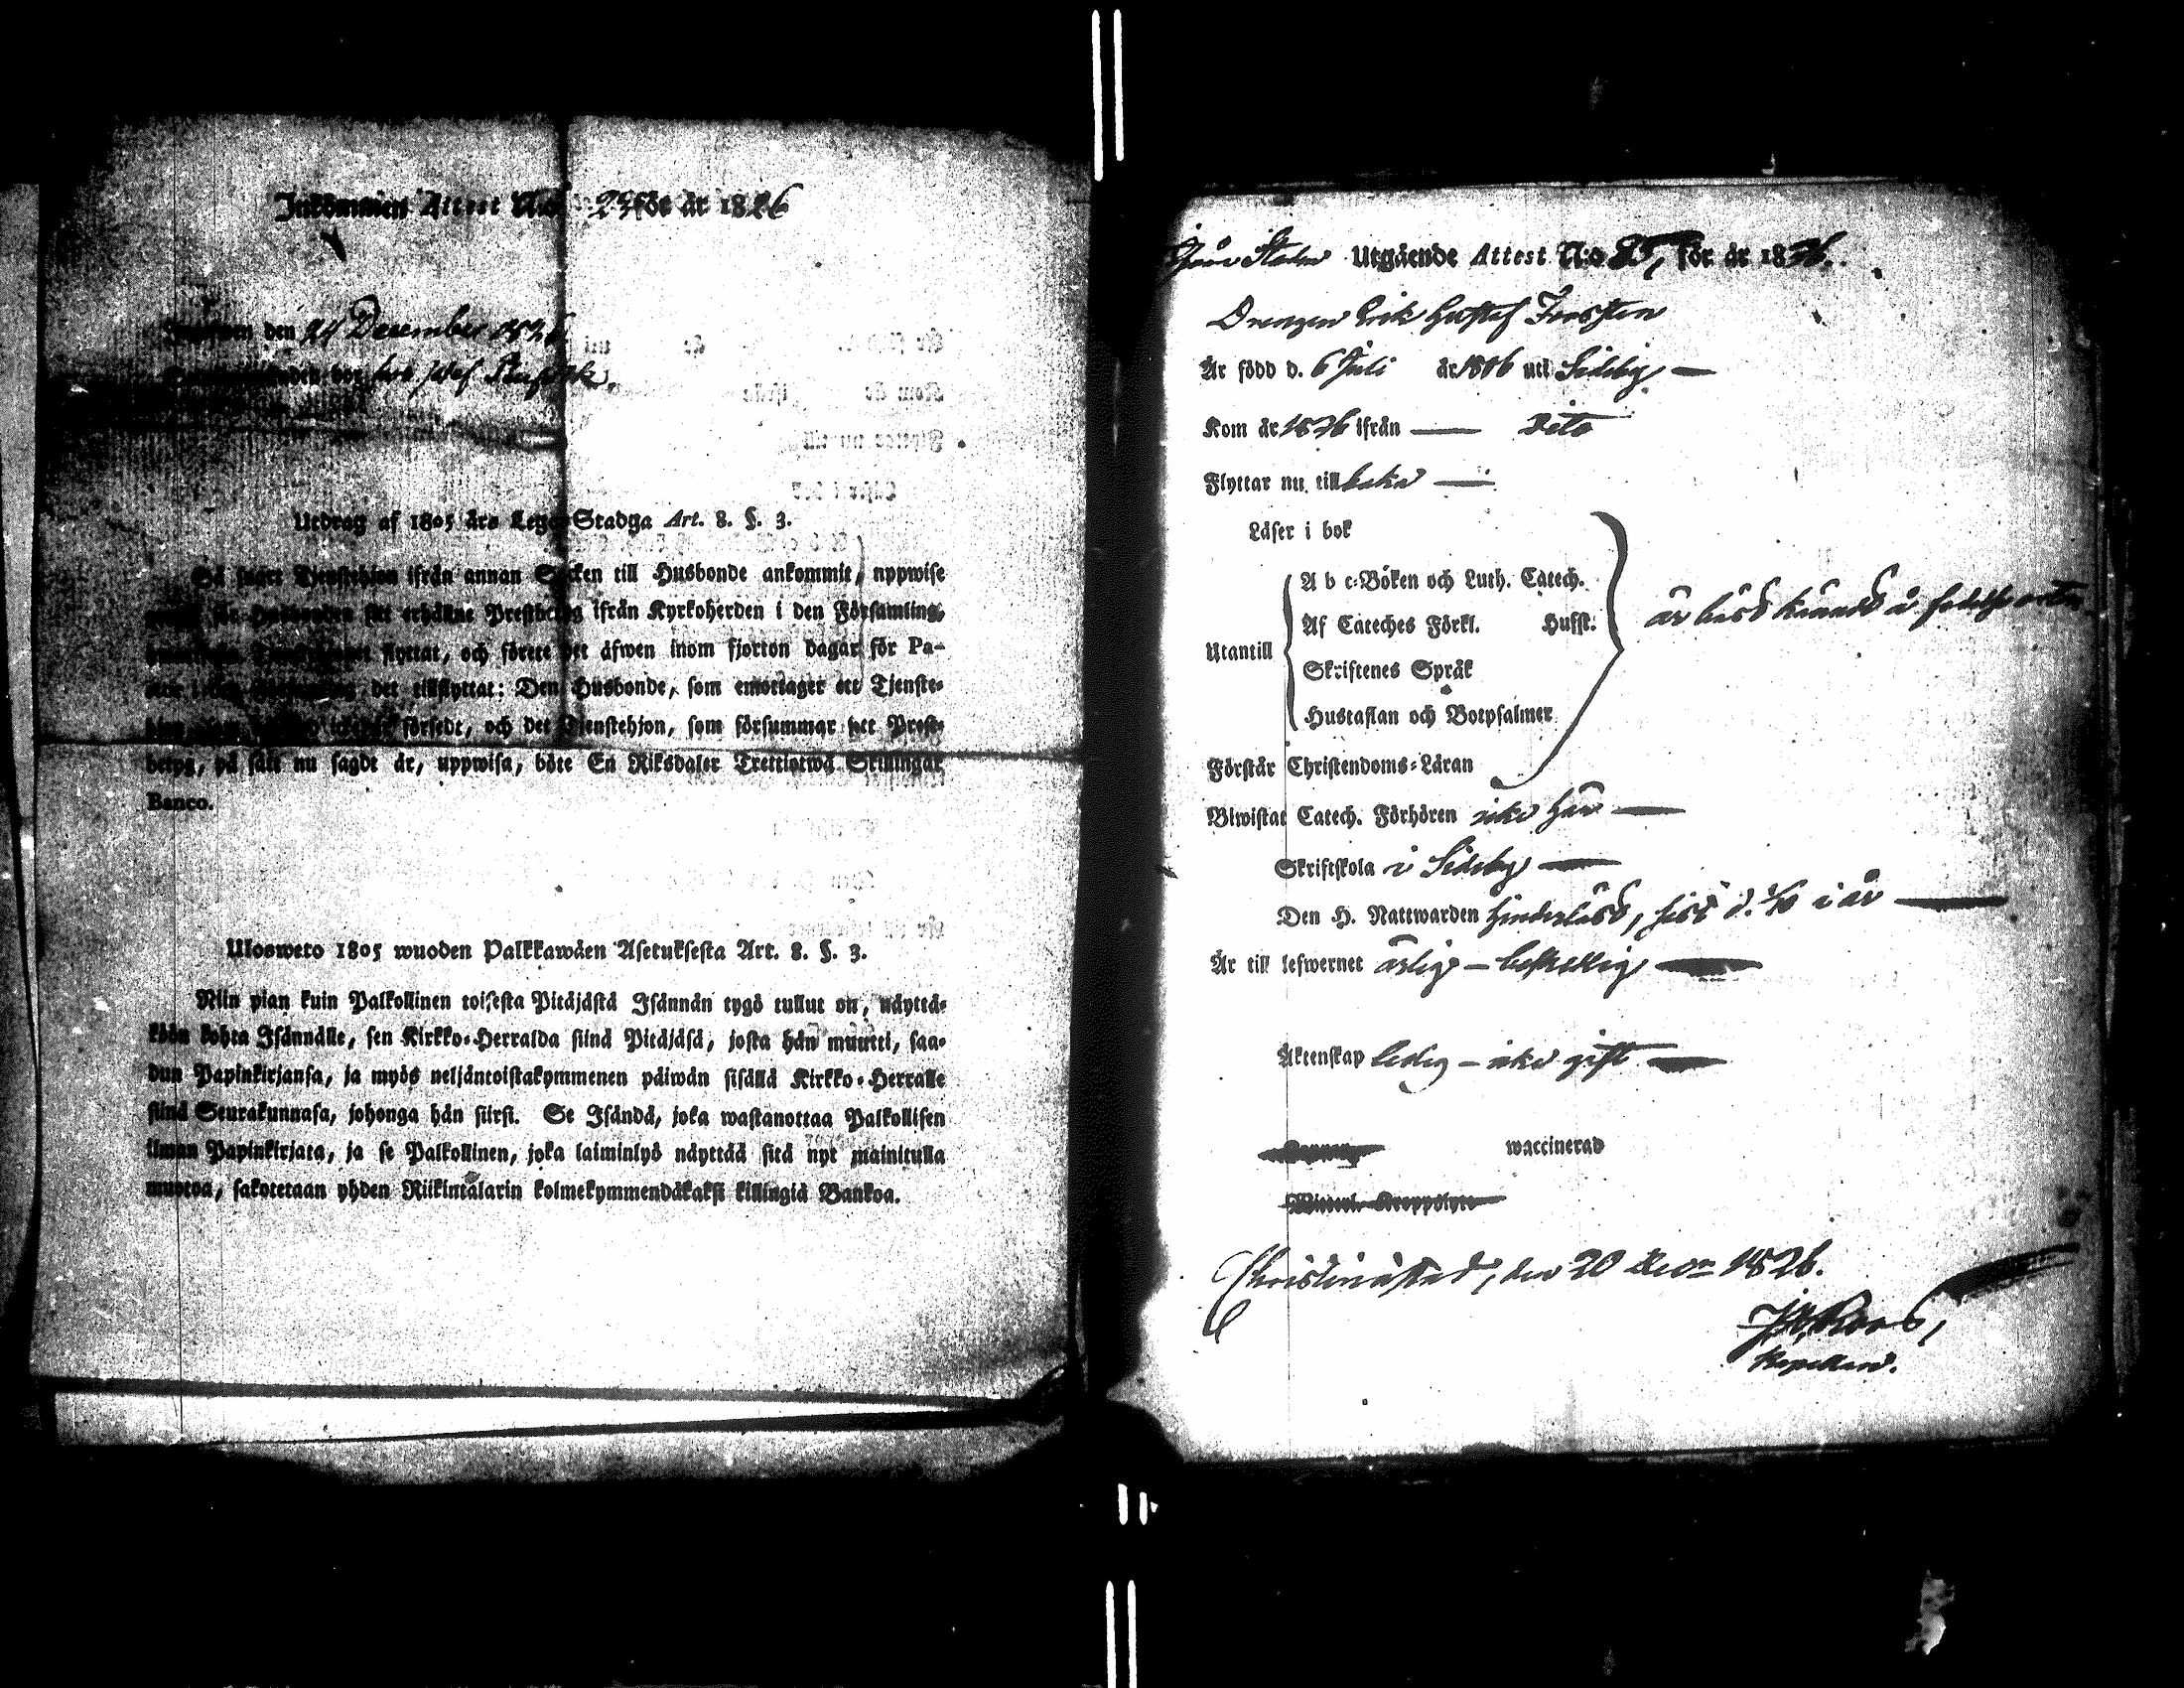 Inkommen Attest N:o 23 för år 1826
den 24 December 1826
Utdrag af 1805 års Lego-Stadga Art. 8. §. 3.
Så snart Tjenstehjon ifrån annan Socken till Husbonde ankommit, uppwise
erhållne Prestbetyg ifrån Kyrkoherden i den Församling,
flyttat, och förete det äfwen inom fjorton dagar för Pa-
det tillflyttat: Den Husbonde, som emottager ett Tjenste-
försedt, och det Tjenstehjon, som försummar att Prest-
betyg, på sätt nu sagdt är, uppwisa, böte En Riksdaler Trettiotwå Skillingar
Banco.
Ulosweto 1805 wuoden Palkkawäen Asetuksesta Art. 8. §. 3.
Niin pian kuin Palkollinen toisesta Pitäjästä Isännän tygö tullut on, näyttä-
köön kohta Isännälle, sen Kirkko-Herralda siinä Pitäjäsä, josta hän muutti, saa-
dun Papinkirjansa, ja myös neljäntoistakymmenen päiwän sisällä Kirkko-Herralle
siinä Seurakunnasa, johonga hän siirsi. Se Isändä, joka wastanottaa Palkollisen
ilman Papinkirjata, ja se Palkollinen, joka laiminlyö näyttää sitä nyt mainitulla
muotoa, sakotetaan yhden Riikintalarin kolmekymmendäkaksi killingiä Bankoa.
Utgående Attest N:o 85, för år 1826.
Drengen Erik Gustaf
Är född d. 6 Juli år 1806 uti Sideby
Kom år 1826 ifrån Dito
Flyttar nu tillbaka
Läser i bok
A b c-Boken och Luth. Catech.
Af Cateches Förkl. Hufst.
Utantill
Skriftenes Språk
Hustaflan och Botpsalmer
Förstår Christendoms-Läran
Biwistat Catech. Förhören icke här
Skriftskola i Sideby
Den H. Nattwarden i år
Är till lefwernet ärlig – beskedlig
Äktenskap ledig – icke gift
waccinerad
Christinæstad, den 20 Decr 1826.
Roos,
Kapellan.